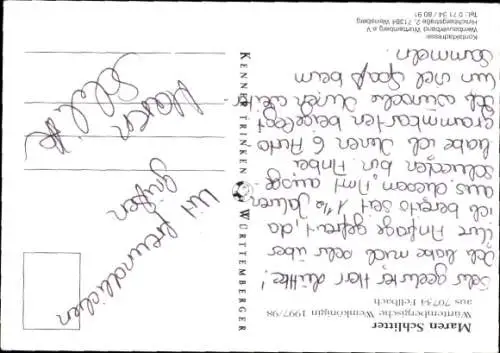 Maren Schlitter
Württembergische Weinkönigin 1997/98
aus 70734 Fellbach
Sehr geehrter Herr
Ich habe mich sehr über
Ihre Anfrage gefreut, da
ich bereits seit 1 1/2 Jahren
aus diesem Amt ausge-
schieden bin. Anbei
habe ich Ihnen 6 Auto-
grammkarten beigelegt
Ich wünsche Ihnen weiter-
hin viel Spaß beim
Sammeln.
Kontaktadresse
Weinbauverband Württemberg e.V.
Hirschbergstraße 2, 71384 Weinsberg
Tel.: 0 71 34 / 80 91
KENNER TRINKEN WÜRTTEMBERGER
Mit freundlichen
Grüßen
Maren